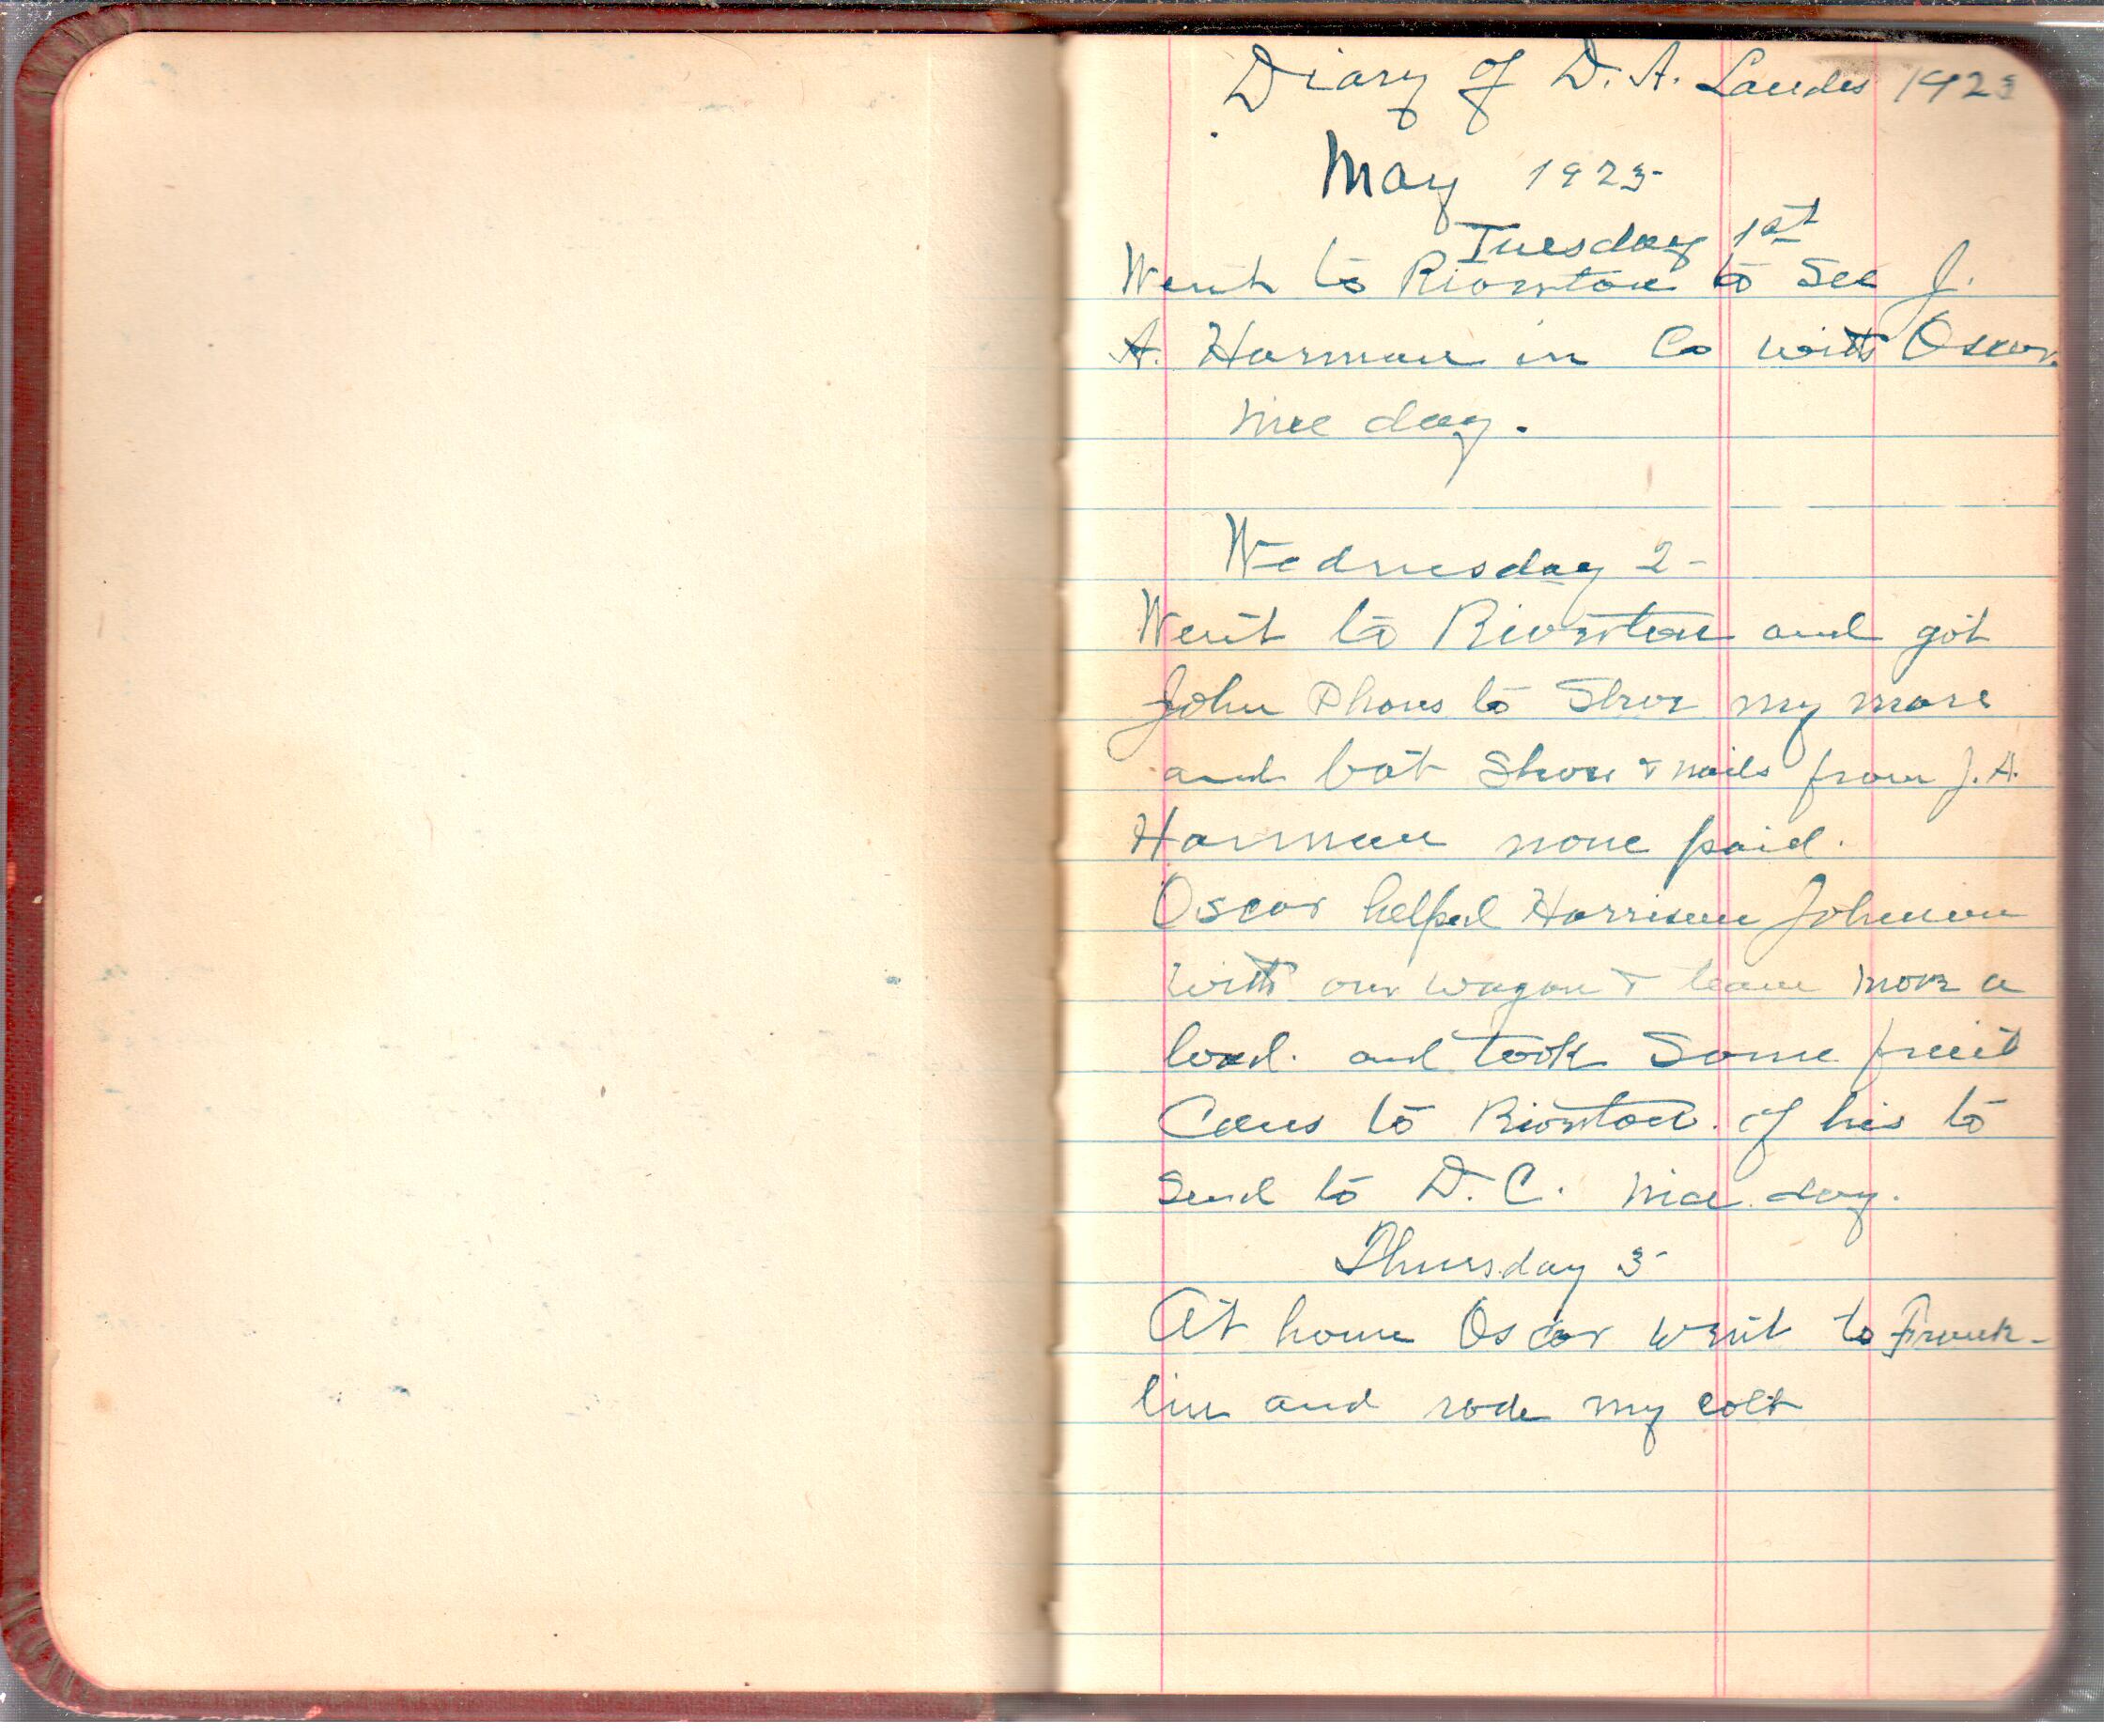 Diary of D. A. Landes 1923
May 1923
Tuesday 1st
Went to Riverton to See J.
A. Harman in Co with Oscar.
nice day.
Wednesday 2-
Went to Riverton and got
John to Shoe my mare
and bot Shoes & nails from J. A.
Harman none paid.
Oscar helped Harrison Johnson
with our wagon & team move a
load. and took Some fruit
Cans to Riverton. of his to
Send to D. C. Nice day.
Thursday 3-
At home Oscar went to Frank-
lin and rode my colt